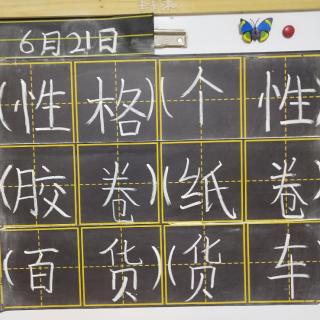 6月21日
(性格)(个性)
(胶卷)(纸卷)
(百货)(货车)